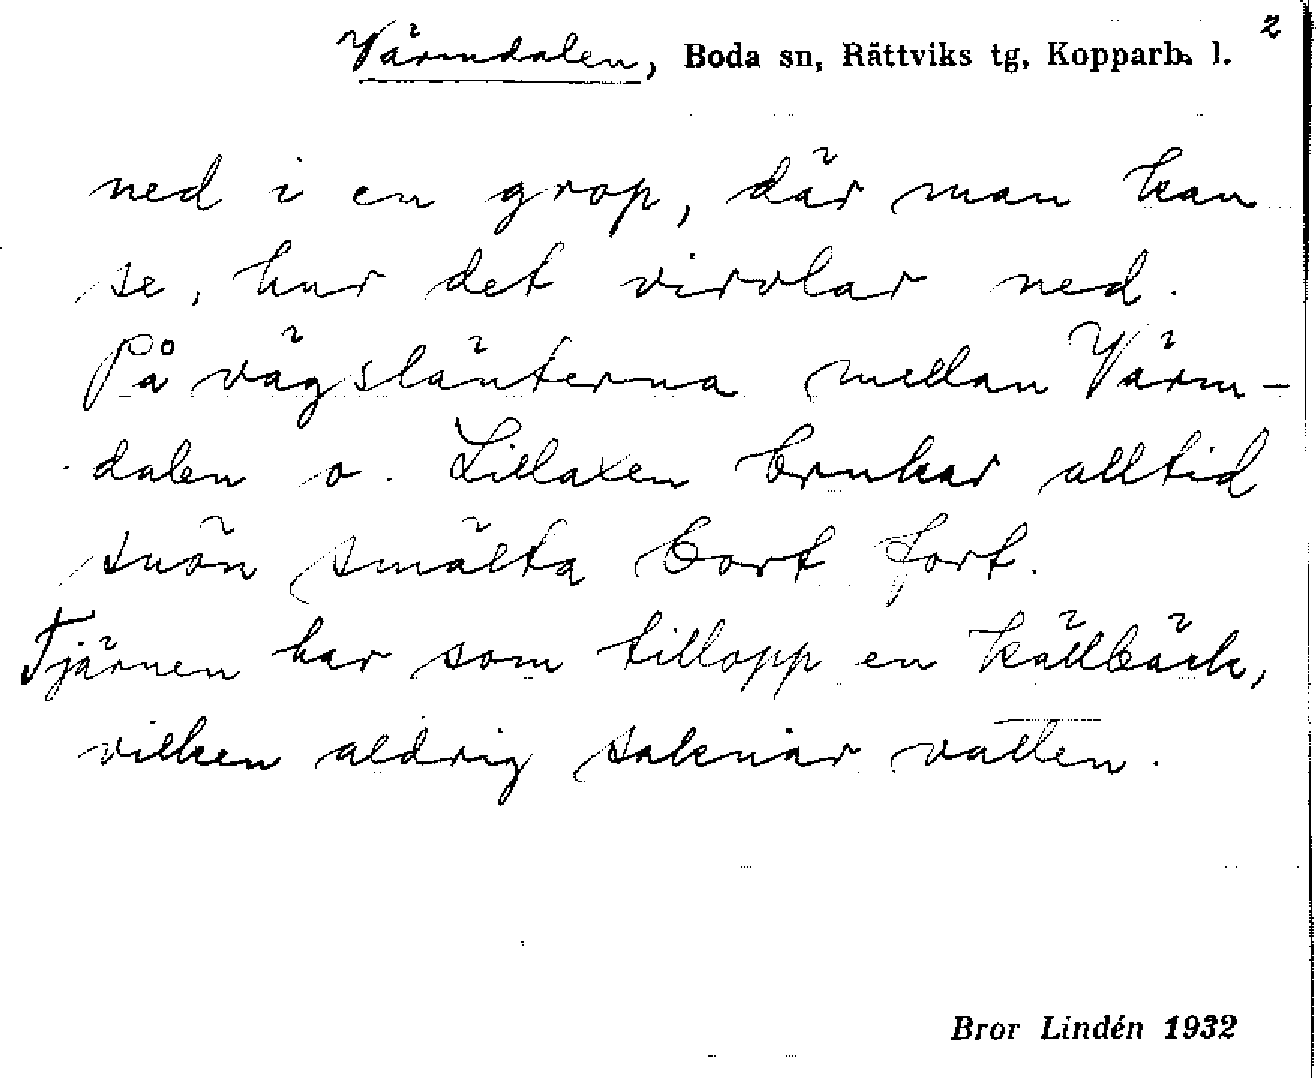 Värmdalen, Boda sn, Rättviks tg, Kopparb. l. 2
ned i en grop, där man kan
se, hur det virvlar ned.
På vägslänterna mellan Värm-
dalen o. Lillaxen brukar alltid
snön smälta bort fort.
Tjärnen har som tillopp en källbäck,
vilken aldrig saknar vatten.
Bror Lindén 1932